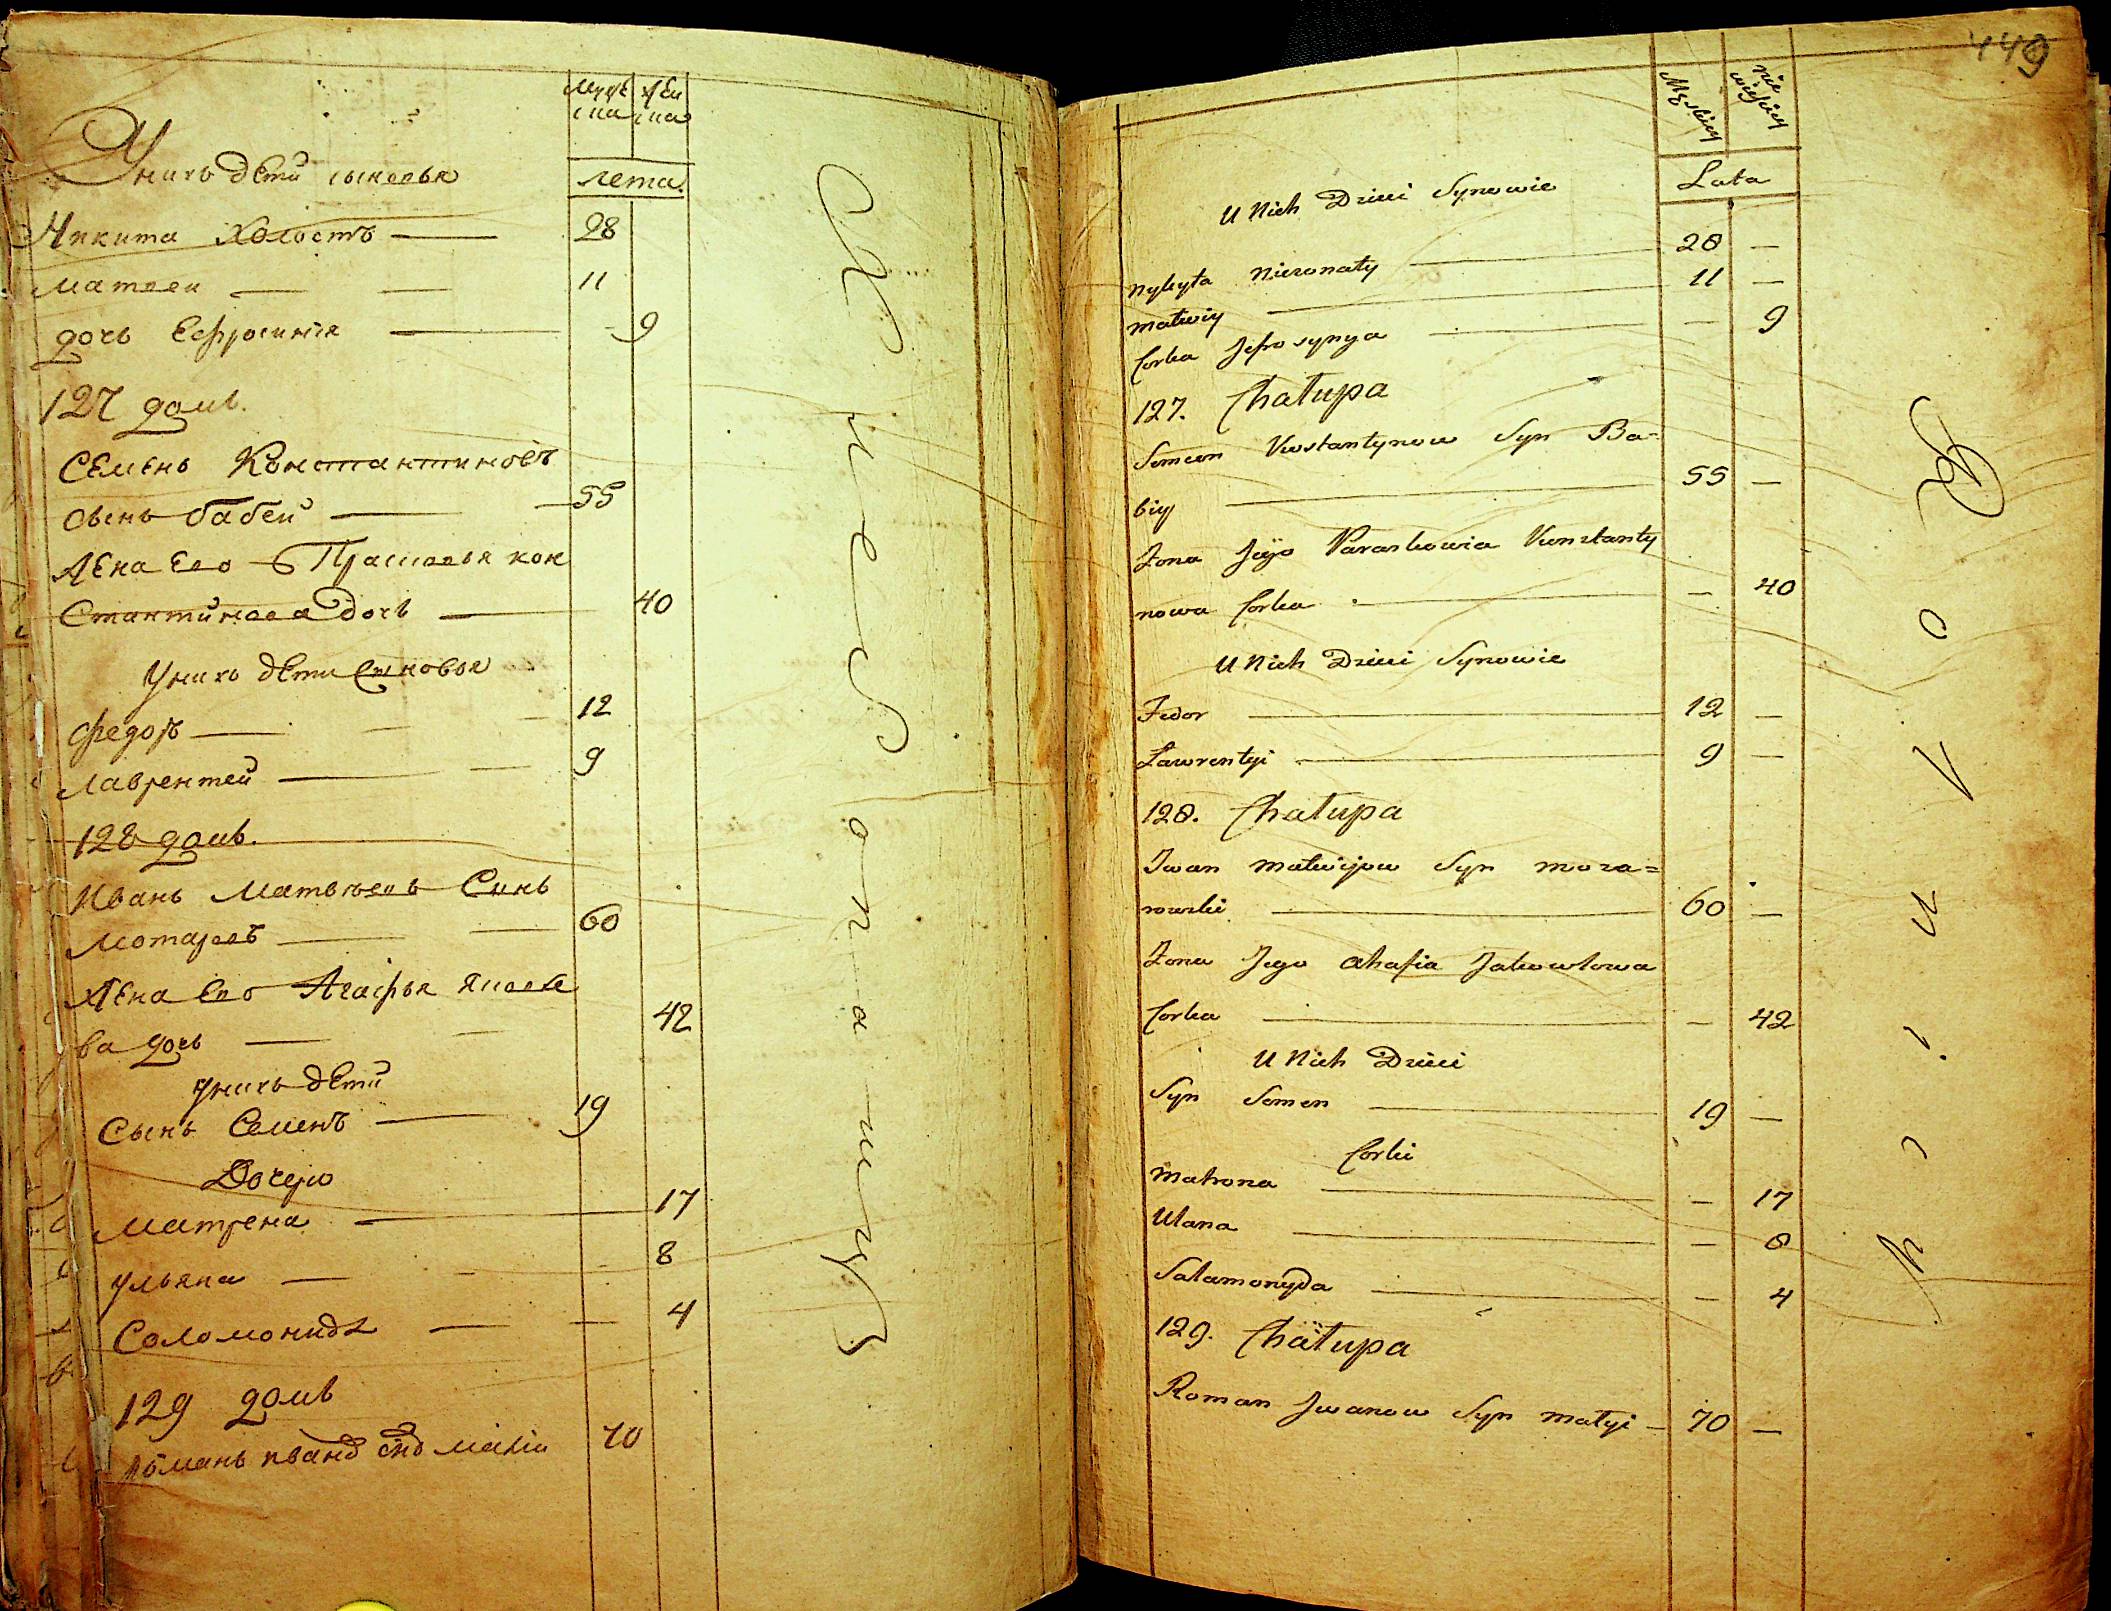 мужеска женска
Лета
У нихъ дети сыновья
Никита холостъ — 28
Матвеи — 11
дочь Ефросиния — 9
127 домъ.
Семенъ Константиновъ
сынъ бабей — 55
Жена Его Прасковья Кон
стантинова дочь — 40
У нихъ дети Сыновья
Федоръ — 12
Лаврентей — 9
128 домъ.
Иванъ Матвѣевъ Сынъ
— 60
Жена Его Агафья Яковле
ва дочь — 42
У нихъ дети
Сынъ Семенъ — 19
Дочери
Матрена — 17
Ульяна — 8
Соломонида — 4
129 домъ
Романъ Ивановъ Сынъ 70
149
Męskiey nie wieyskiey
Lata
U Nich Dzieci Synowie
Nykyta Nieżonaty — 28 —
Matwiy — 11 —
Corka Jefrosynya — — 9
127. Chałupa
Semeon Konstantynow Syn Ba=
biy — 55 —
Żona Jego Paraskowia Konstanty
nowa Corka — — 40
U Nich Dzieci Synowie
Fedor — 12 —
Ławrentyi — 9 —
128. Chałupa
Iwan Matwijow Syn
— 60 —
Żona Jego Ahafia Jakowlowa
Corka — — 42
U Nich Dzieci
Syn Semen — 19 —
Corki
Matrona — — 17
Ulana — — 8
Salamonyda — — 4
129. Chałupa
Roman Iwanow Syn Małyi — 70 —